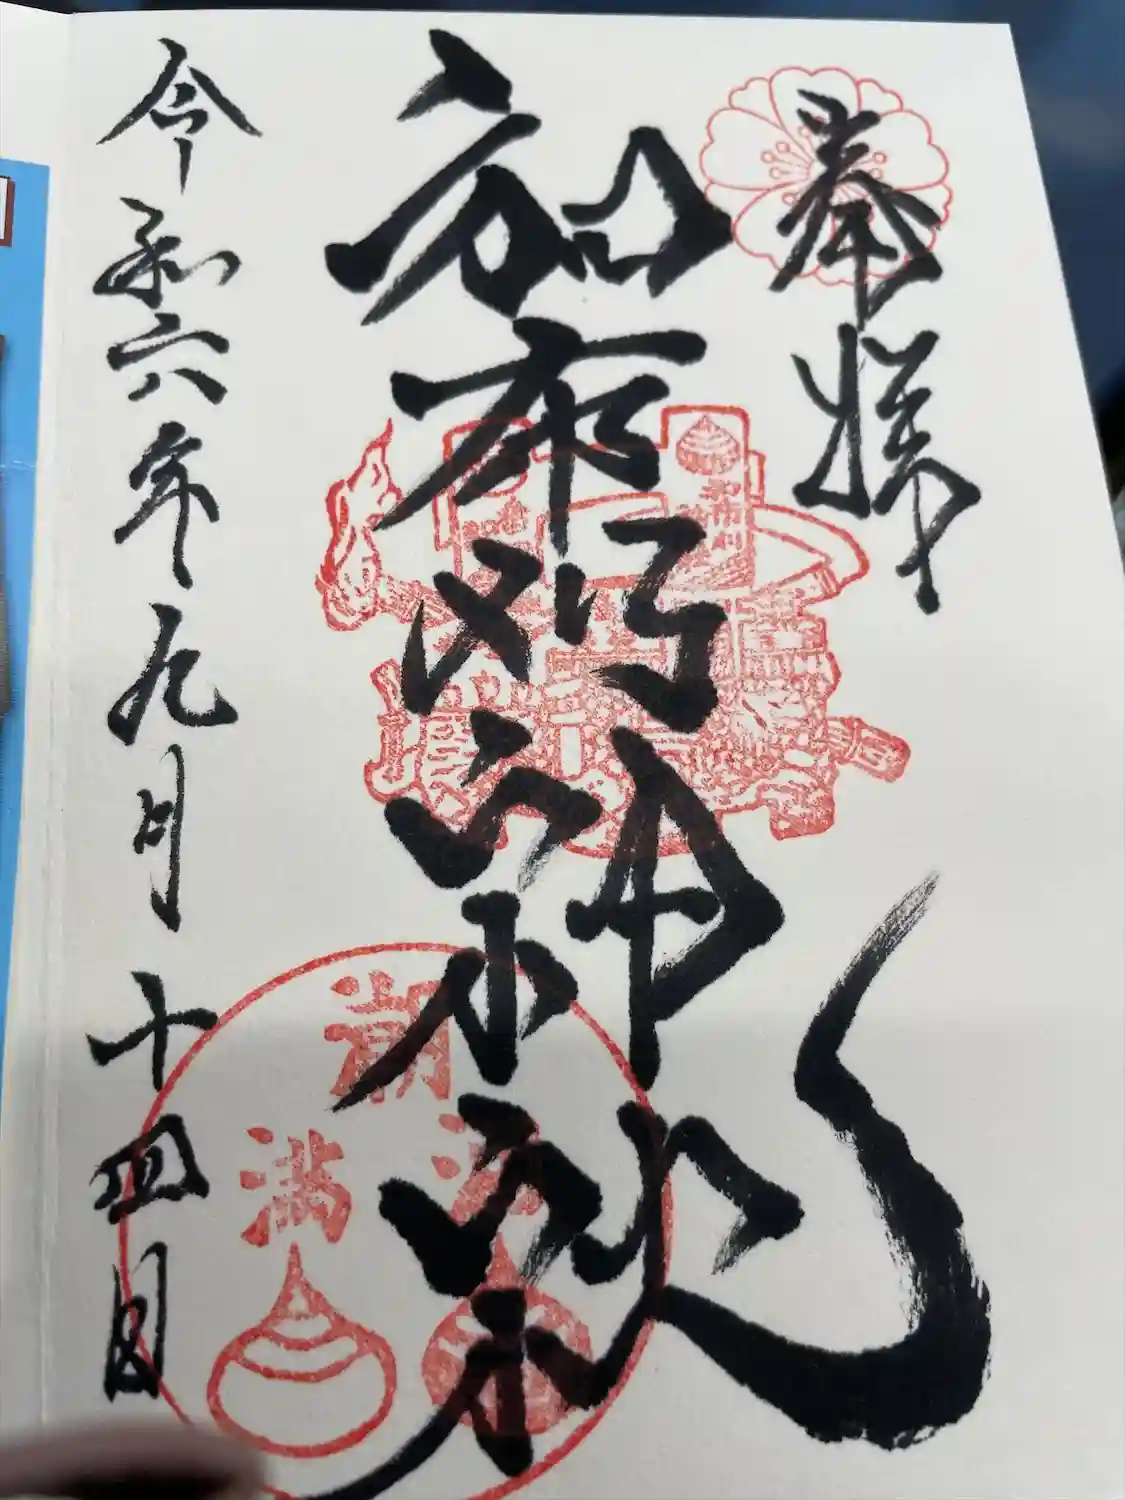 奉拝
和布刈神社
和布刈
令和六年九月十四日
潮
満